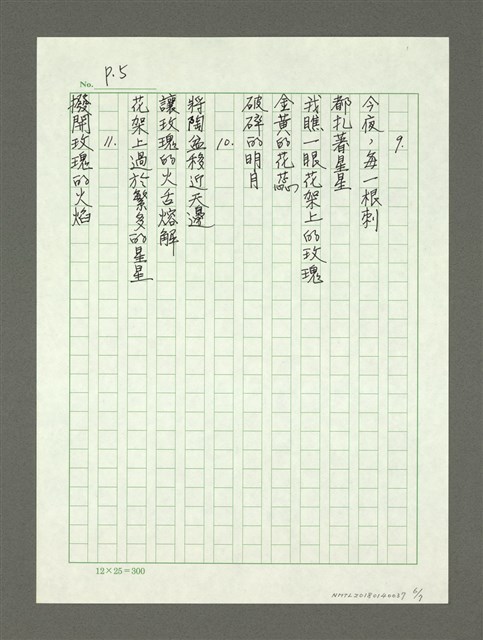 No. P.5
9.
今夜，每一根刺
都扎著星星
我瞧一眼花架上的玫瑰
金黃的花蕊
破碎的明月
10.
將陶盆移近天邊
讓玫瑰的火舌熔解
花架上過於繁多的星星
11.
撥開玫瑰的火焰
12×25=300
NMTL20180140037 6/7